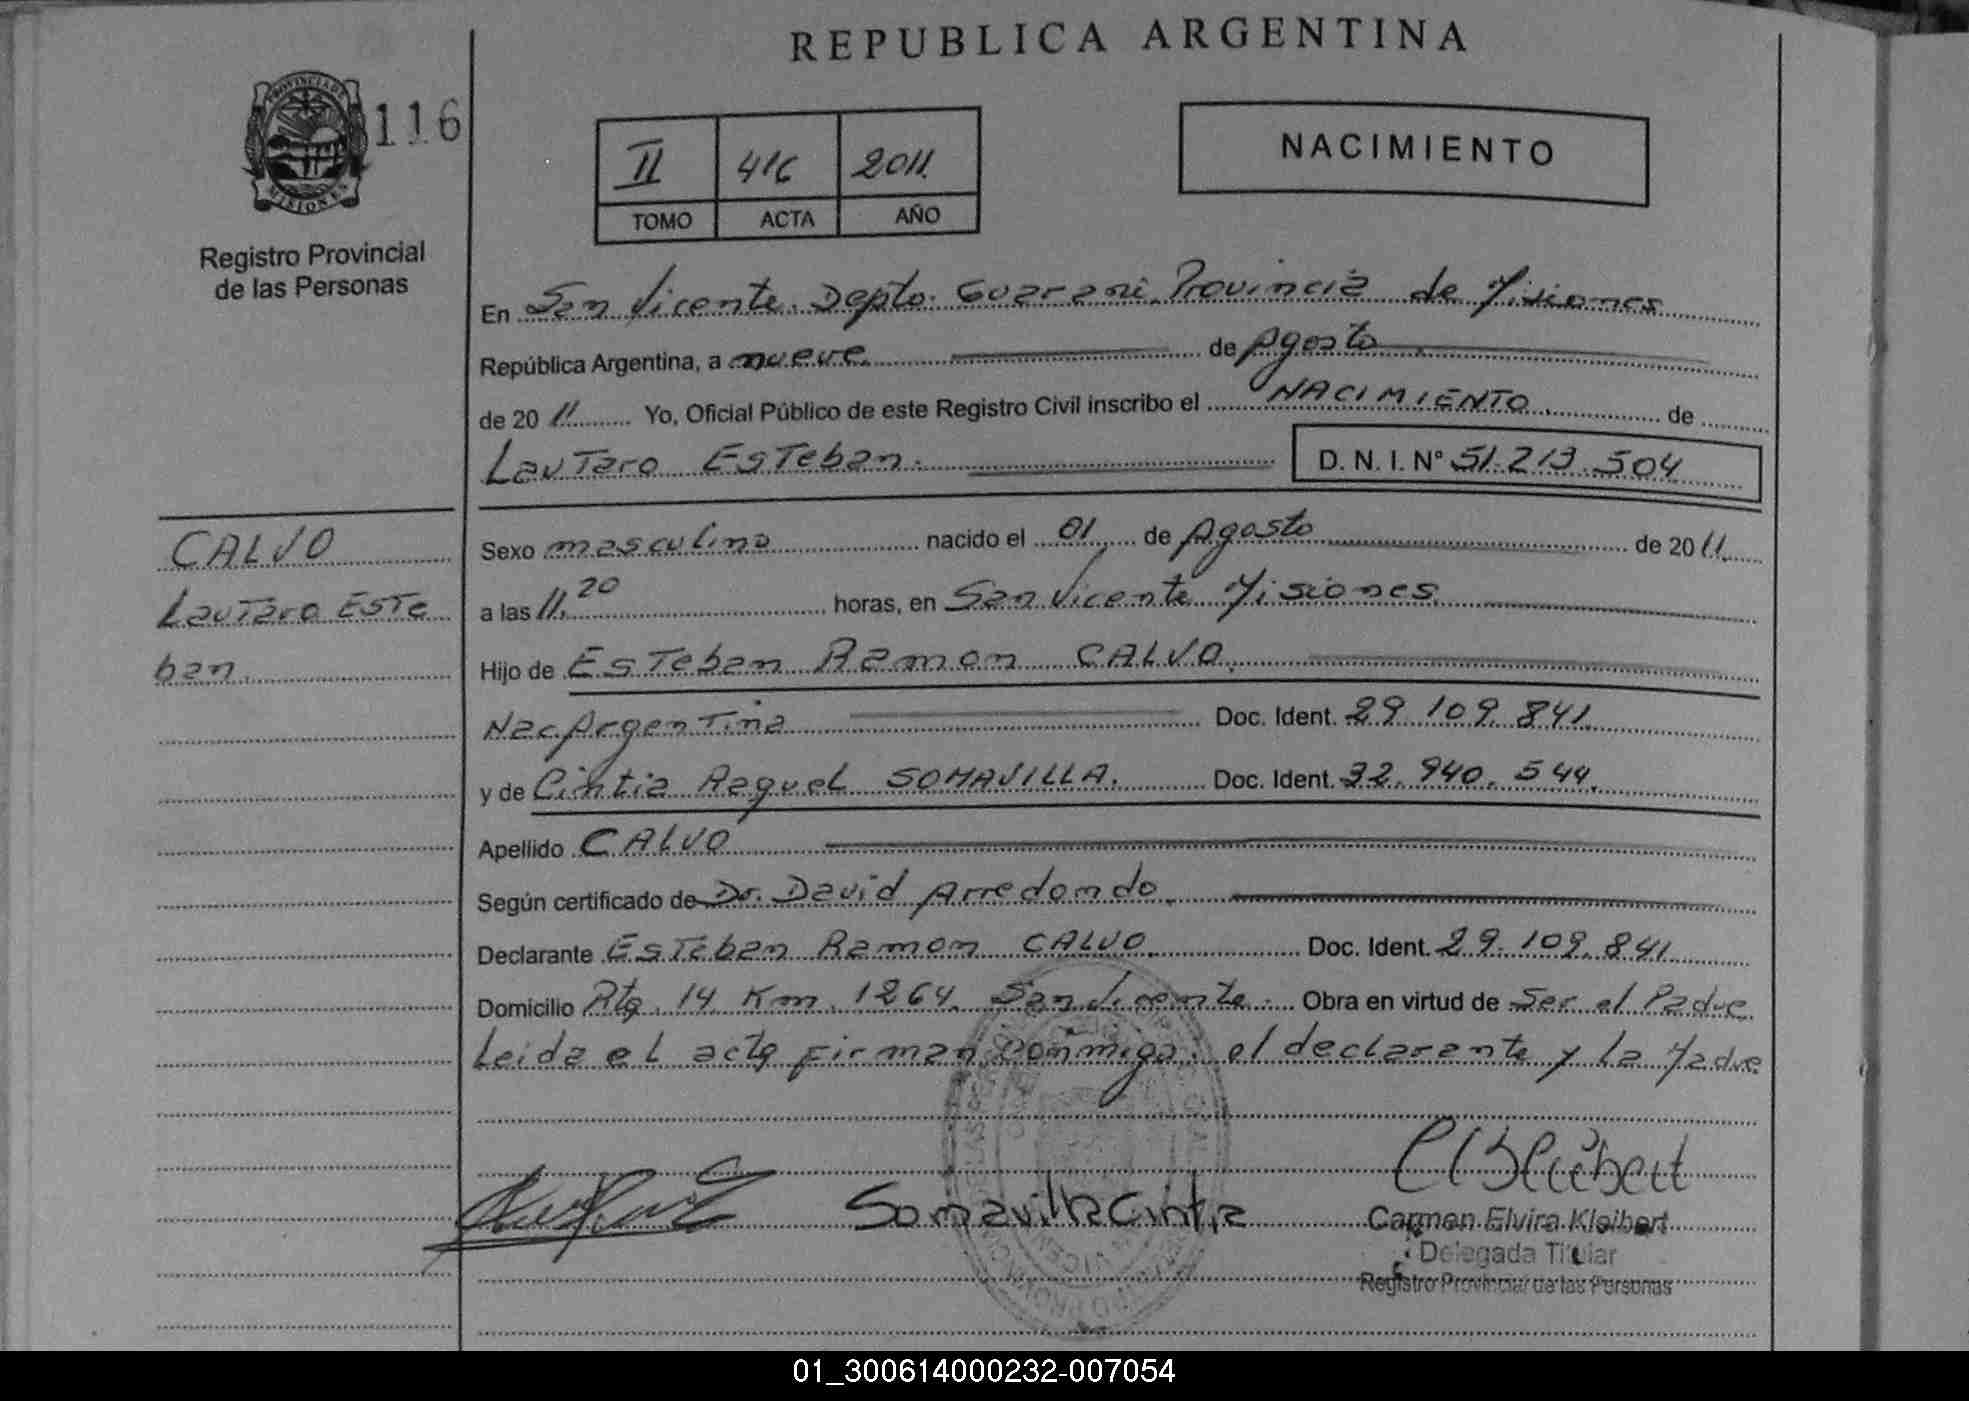 REPUBLICA ARGENTINA
PROVINCIA DE MISIONES
116
Registro Provincial
de las Personas
II 416 2011
TOMO ACTA AÑO
NACIMIENTO
En San Vicente. Depto. Guarani. Provincia de Misiones
República Argentina, a nueve de Agosto
de 2011 Yo, Oficial Público de este Registro Civil inscribo el NACIMIENTO. de
Lautaro Esteban. D. N. I. N° 51.213.504
CALVO
Lautaro Este
ban.
Sexo masculino nacido el 01 de Agosto de 2011
a las 11,20 horas, en San Vicente Misiones
Hijo de Esteban Ramon CALVO.
Nac. Argentina Doc. Ident. 29.109.841.
y de Cintia Raquel SOMAVILLA. Doc. Ident. 32.940.544.
Apellido CALVO
Según certificado de Dr. David Arredondo.
Declarante Esteban Ramon CALVO. Doc. Ident. 29.109.841
Domicilio Rta. 14 Km. 1264. San Vicente. Obra en virtud de Ser el Padre
Leida el acta firman conmigo. el declarante y la Madre
Somavilla Cintia
Carmen Elvira Kleibert
Delegada Titular
Registro Provincial de las Personas
01_300614000232-007054